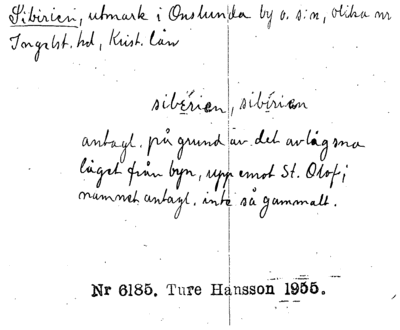 Sibirien, utmark i Onslunda by o. s:n, olika nr
Ingelst. hd, Krist. län
sibérien, sibírien
antagl. på grund av det avlägsna
läget från byn, upp emot St. Olof;
namnet antagl. inte så gammalt.
Nr 6185. Ture Hansson 1955.